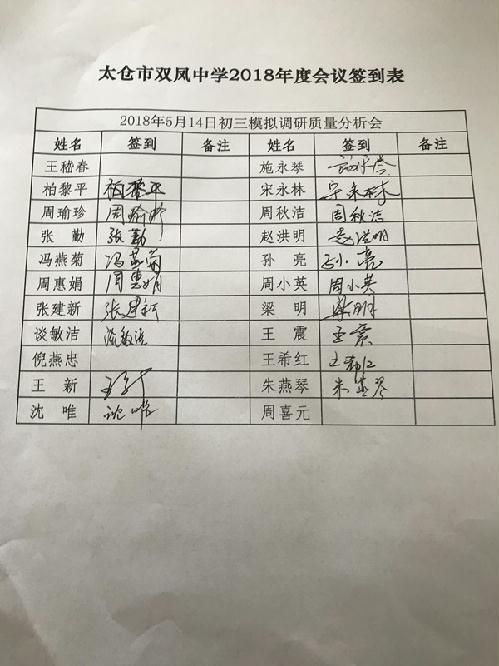 太仓市双凤中学2018年度会议签到表
2018年5月14日初三模拟调研质量分析会
姓名 签到 备注 姓名 签到 备注
王嵇春 施永琴
柏黎平 柏黎平 宋永林 宋永林
周瑜珍 周瑜珍 周秋洁 周秋洁
张勤 张勤 赵洪明 赵洪明
冯燕菊 冯燕菊 孙亮 孙亮
周惠娟 周惠娟 周小英 周小英
张建新 张建新 梁明 梁明
谈敏洁 谈敏洁 王震 王震
倪燕忠 王希红
王新 朱燕琴 朱燕琴
沈唯 沈唯 周喜元